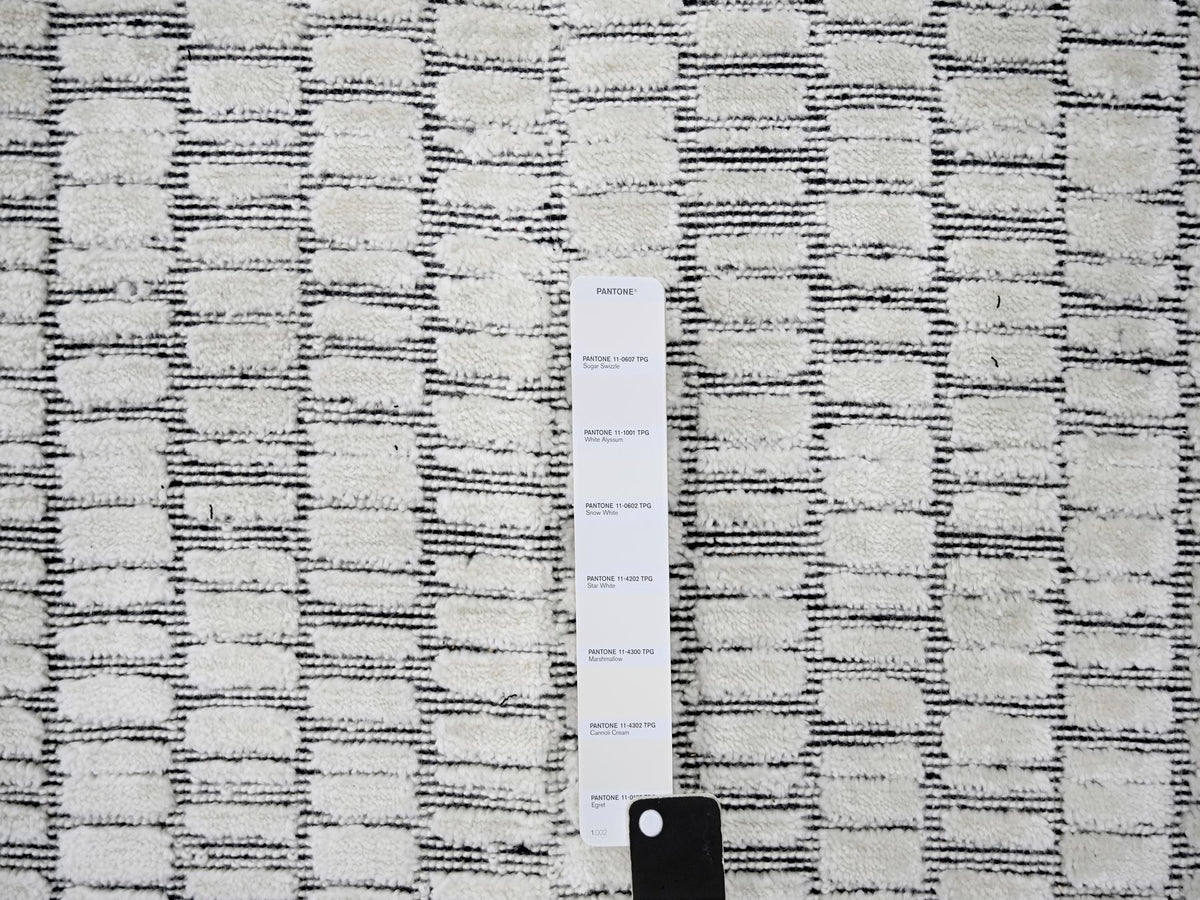 PANTONE®
PANTONE 11-0607 TPG
Sugar Swizzle
PANTONE 11-1001 TPG
White Alyssum
PANTONE 11-0602 TPG
Snow White
PANTONE 11-4202 TPG
Star White
PANTONE 11-4300 TPG
Marshmallow
PANTONE 11-4302 TPG
Cannoli Cream
PANTONE
Egret
1.002